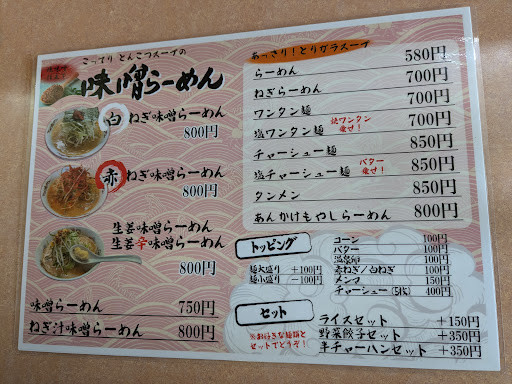 こってりとんこつスープの
味噌らーめん
白ねぎ味噌らーめん
800円
赤ねぎ味噌らーめん
800円
生姜味噌らーめん
生姜辛味噌らーめん
800円
味噌らーめん 750円
ねぎ汁味噌らーめん 800円
あっさり!とりガラスープ
らーめん 580円
ねぎらーめん 700円
ワンタン麺 700円
塩ワンタン麺 700円
チャーシュー麺 850円
塩チャーシュー麺 バター乗せ! 850円
タンメン 850円
あんかけもやしらーめん 800円
トッピング
麺大盛り +100円
麺小盛り -100円
コーン 100円
バター 100円
温泉卵 100円
赤ねぎ/白ねぎ 100円
メンマ 150円
チャーシュー(5枚) 400円
セット
ライスセット +150円
野菜餃子セット +350円
半チャーハンセット +350円